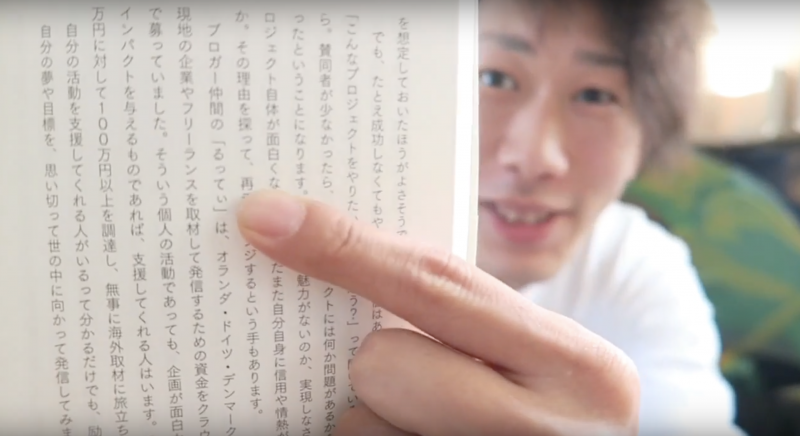 を想定しておいたほうがよさそうで
でも、たとえ成功しなくてもや
「こんなプロジェクトをやりた、
う？」って
ら。賛同者が少なかったら、
クトには何か問題があるか
ったということになります。
魅力がないのか、実現しなさ
ロジェクト自体が面白くな
たまた自分自身に信用や情熱が
か。その理由を探って、再
ジするという手もあります。
ブロガー仲間の「るってぃ」は、オランダ・ドイツ・デンマーク
現地の企業やフリーランスを取材して発信するための資金をクラウ
で募っていました。そういう個人の活動であっても、企画が面白
インパクトを与えるものであれば、支援してくれる人はいます。
万円に対して１００万円以上を調達し、無事に海外取材に旅立ち
自分の活動を支援してくれる人がいるって分かるだけでも、励
自分の夢や目標を、思い切って世の中に向かって発信してみま